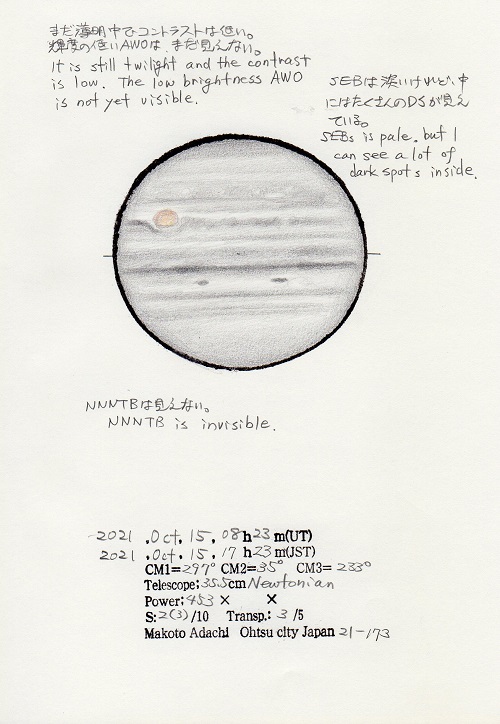 まだ薄明中でコントラストは低い。
輝度の低いAWOは、まだ見えない。
It is still twilight and the contrast
is low. The low brightness AWO
is not yet visible.
SEBは淡いけれど、中
にはたくさんのDSが見え
ている。
SEBs is pale. but I
can see a lot of
dark spots inside.
NNNTBは見えない。
NNNTB is invisible.
2021 .Oct. 15. 08h23m(UT)
2021 .Oct. 15. 17h23m(JST)
CM1=297° CM2=35° CM3=233°
Telescope; 35.5cm Newtonian
Power; 453× ×
S: 2(3)/10 Transp.: 3/5
Makoto Adachi Ohtsu city Japan 21-173